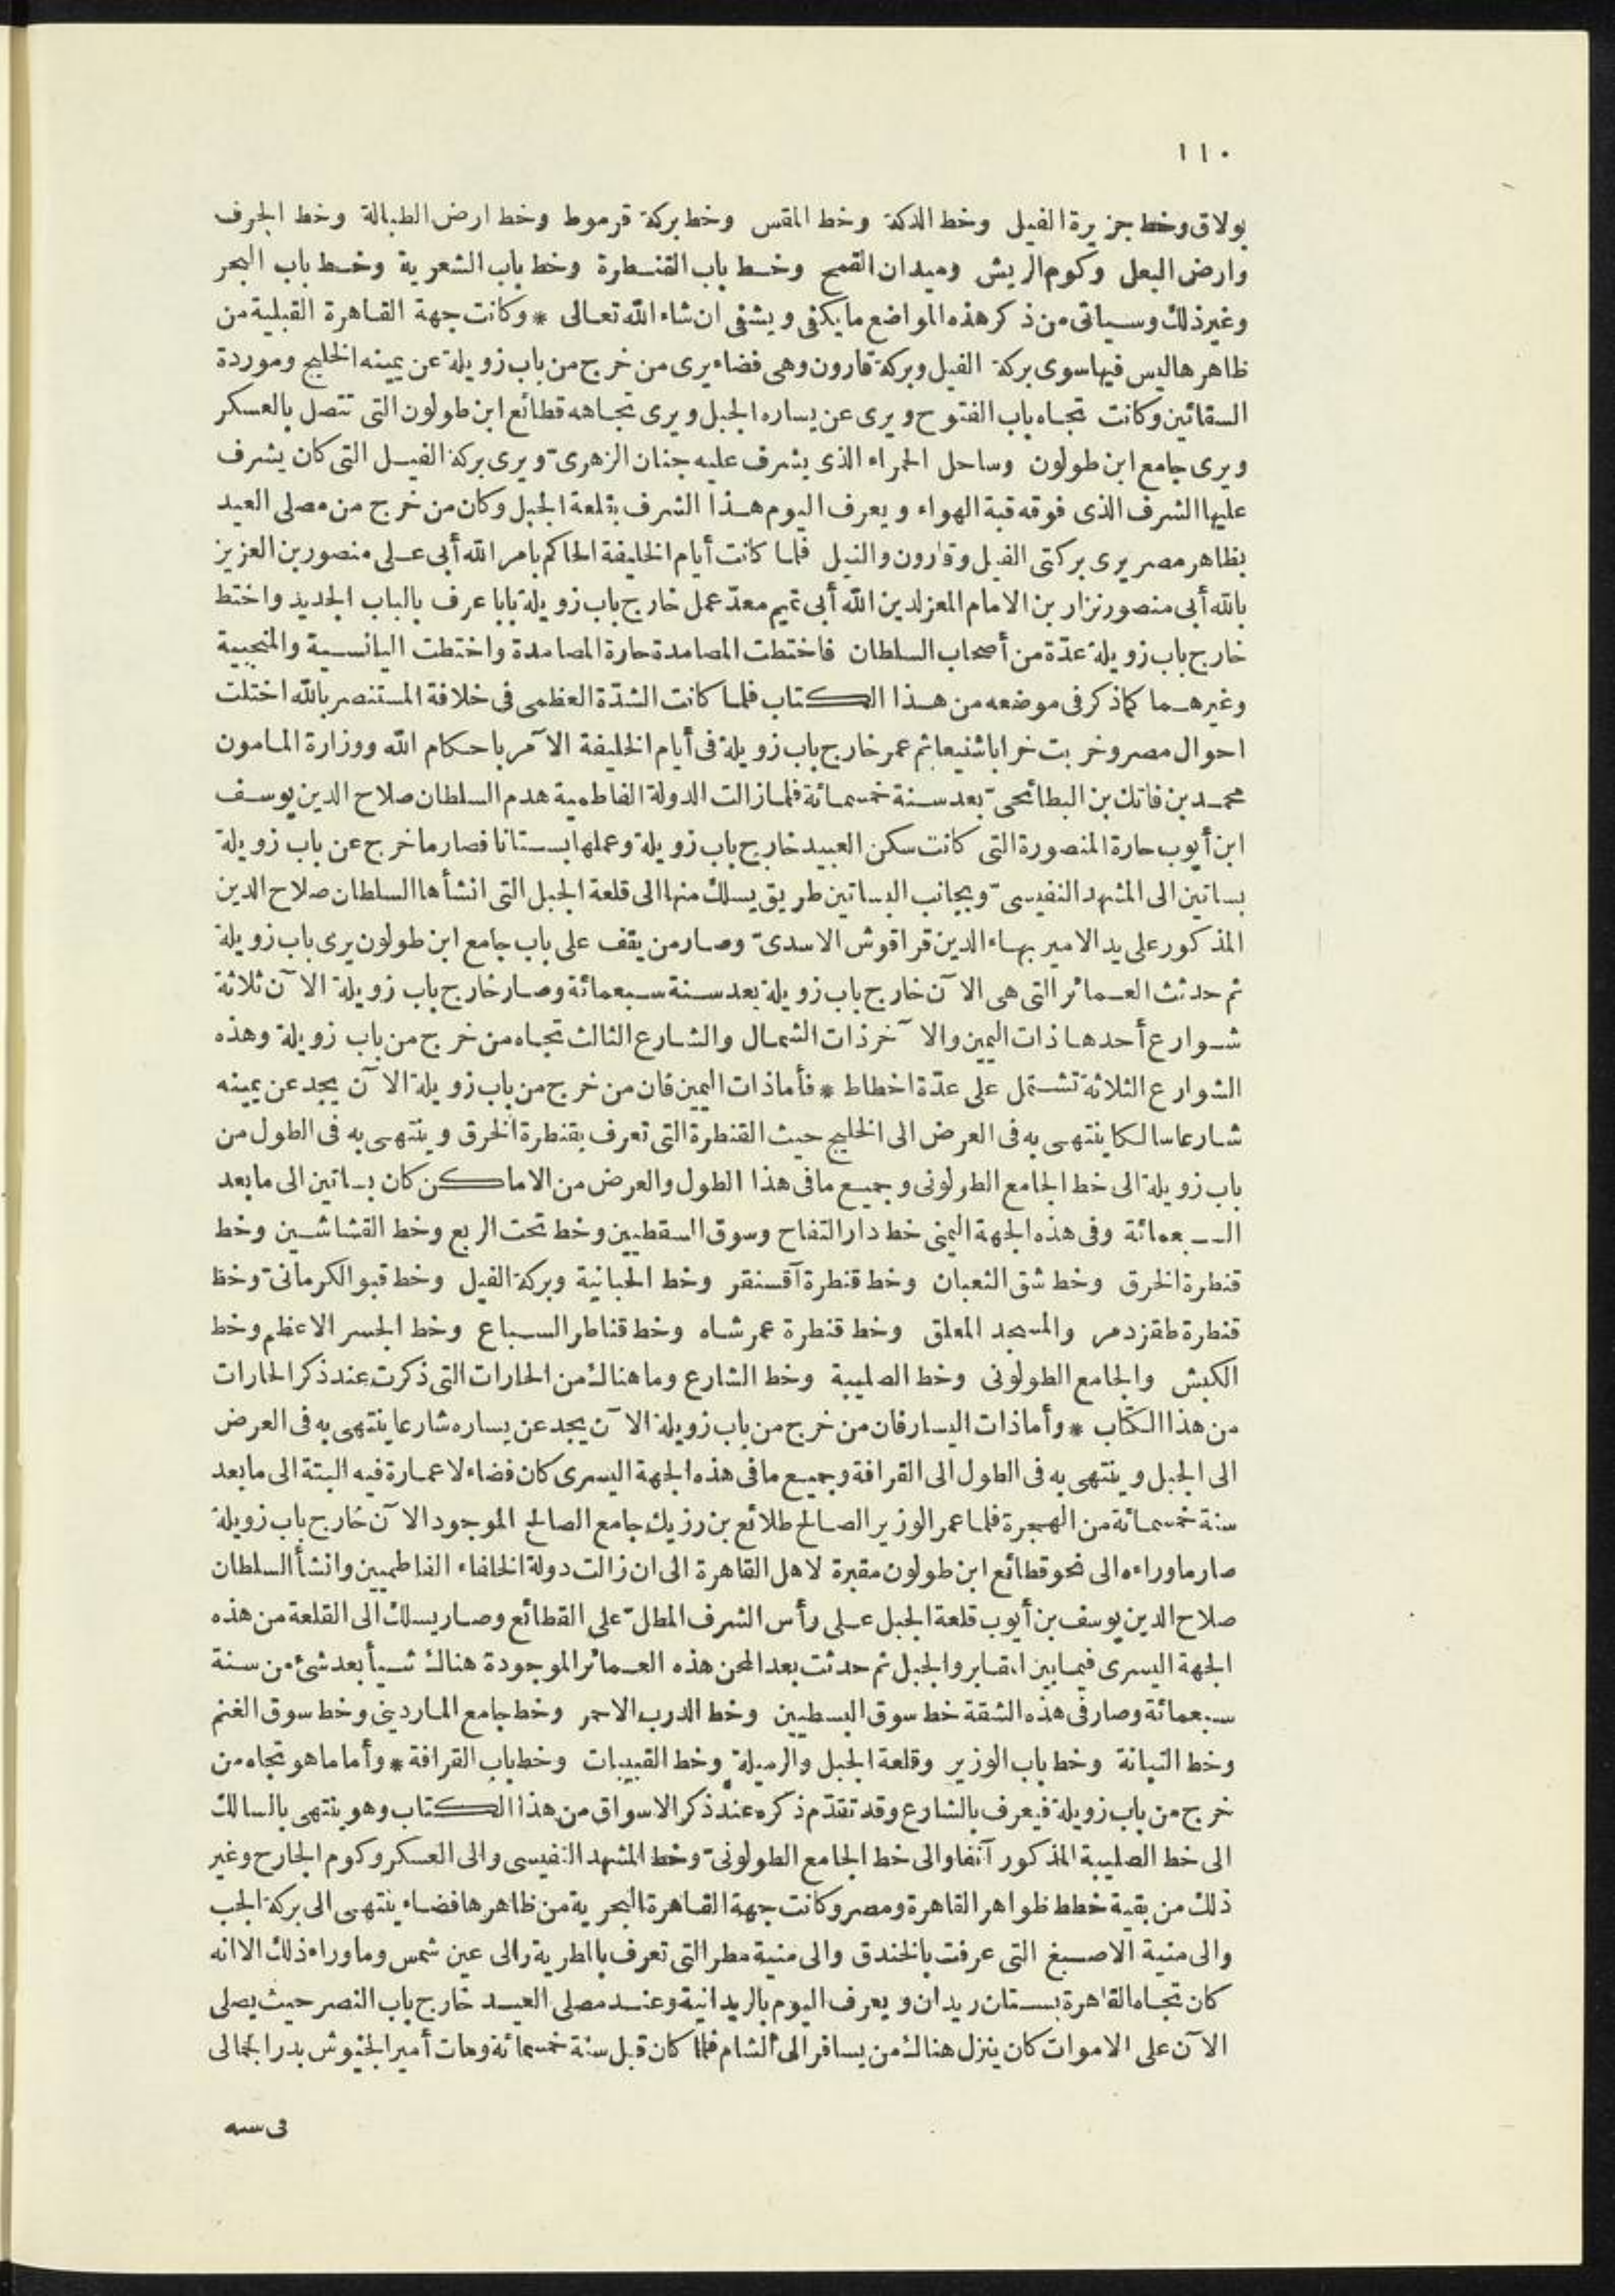 ١١٠
بولاق وخط جزيرة الفيل وخط الدكة وخط المقس وخط بركة قرموط وخط ارض الطبالة وخط الجرف
وارض البعل وكوم الريش وميدان القمح وخط باب القنطرة وخط باب الشعرية وخط باب البحر
وغير ذلك وسياتى من ذكر هذه المواضع ما يكفى ويشفى ان شاء الله تعالى * وكانت جهة القاهرة القبلية من
ظاهرها ليس فيها سوى بركة الفيل وبركة قارون وهى فضاء يرى من خرج من باب زويلة عن يمينه الخليج وموردة
السقائين وكانت تجاه باب الفتوح ويرى عن يساره الجبل ويرى تجاهه قطائع ابن طولون التى تتصل بالعسكر
ويرى جامع ابن طولون وساحل الحمراء الذى يشرف عليه جنان الزهرىّ ويرى بركة الفيل التى كان يشرف
عليها الشرف الذى فوقه قبة الهواء ويعرف اليوم هذا الشرف بقلعة الجبل وكان من خرج من مصلى العيد
بظاهر مصر يرى بركتى الفيل وقارون والنيل فلما كانت أيام الخليفة الحاكم بامر الله أبى على منصور بن العزيز
بالله أبى منصور نزار بن الامام المعز لدين الله أبى تميم معدّ عمل خارج باب زويلة بابا عرف بالباب الجديد واختط
خارج باب زويلة عدّة من أصحاب السلطان فاختطت المصامدة حارة المصامدة واختطت اليانسية والمنجبية
وغيرهما كما ذكر فى موضعه من هذا الكتاب فلما كانت الشدّة العظمى فى خلافة المستنصر بالله اختلت
احوال مصر وخربت خرابا شنيعا ثم عمر خارج باب زويلة فى أيام الخليفة الآمر باحكام الله ووزارة المامون
محمد بن فاتك بن البطائحىّ بعد سنة خمسمائة فلما زالت الدولة الفاطمية هدم السلطان صلاح الدين يوسف
ابن أيوب حارة المنصورة التى كانت سكن العبيد خارج باب زويلة وعملها بستانا فصار ما خرج عن باب زويلة
بساتين الى المشهد النفيسىّ وبجانب البساتين طريق يسلك منها الى قلعة الجبل التى انشأها السلطان صلاح الدين
المذكور على يد الامير بهاء الدين قراقوش الاسدىّ وصار من يقف على باب جامع ابن طولون يرى باب زويلة
ثم حدثت العمائر التى هى الآن خارج باب زويلة بعد سنة سبعمائة وصار خارج باب زويلة الآن ثلاثة
شوارع أحدها ذات اليمين والآخر ذات الشمال والشارع الثالث تجاه من خرج من باب زويلة وهذه
الشوارع الثلاثة تشتمل على عدّة اخطاط * فأما ذات اليمين فان من خرج من باب زويلة الآن يجد عن يمينه
شارعا سالكا ينتهى به فى العرض الى الخليج حيث القنطرة التى تعرف بقنطرة الخرق وينتهى به فى الطول من
باب زويلة الى خط الجامع الطولونى وجميع ما فى هذا الطول والعرض من الاماكن كان بساتين الى ما بعد
السبعمائة وفى هذه الجهة اليمنى خط دار التفاح وسوق السقطيين وخط تحت الربع وخط القشاشين وخط
قنطرة الخرق وخط شق الثعبان وخط قنطرة آقسنقر وخط الحبانية وبركة الفيل وخط قبو الكرمانىّ وخط
قنطرة طقزدمر والمسجد المعلق وخط قنطرة عمر شاه وخط قناطر السباع وخط الجسر الاعظم وخط
الكبش والجامع الطولونى وخط الصليبة وخط الشارع وما هنالك من الحارات التى ذكرت عند ذكر الحارات
من هذا الكتاب * وأما ذات اليسار فان من خرج من باب زويلة الآن يجد عن يساره شارعا ينتهى به فى العرض
الى الجبل وينتهى به فى الطول الى القرافة وجميع ما فى هذه الجهة اليسرى كان فضاء لا عمارة فيه البتة الى ما بعد
سنة خمسمائة من الهجرة فلما عمر الوزير الصالح طلائع بن رزيك جامع الصالح الموجود الآن خارج باب زويلة
صار ما وراءه الى نحو قطائع ابن طولون مقبرة لاهل القاهرة الى ان زالت دولة الخلفاء الفاطميين وانشأ السلطان
صلاح الدين يوسف بن أيوب قلعة الجبل على رأس الشرف المطلّ على القطائع وصار يسلك الى القلعة من هذه
الجهة اليسرى فيما بين المقابر والجبل ثم حدثت بعد المحن هذه العمائر الموجودة هناك شيأ بعد شئ من سنة
سبعمائة وصار فى هذه الشقة خط سوق البسطيين وخط الدرب الاحمر وخط جامع الماردينى وخط سوق الغنم
وخط التبانة وخط باب الوزير وقلعة الجبل والرميلة وخط القبيبات وخط باب القرافة * وأما ما هو تجاه من
خرج من باب زويلة فيعرف بالشارع وقد تقدّم ذكره عند ذكر الاسواق من هذا الكتاب وهو ينتهى بالسالك
الى خط الصليبة المذكور آنفا والى خط الجامع الطولونىّ وخط المشهد النفيسى والى العسكر وكوم الجارح وغير
ذلك من بقية خطط ظواهر القاهرة ومصر وكانت جهة القاهرة البحرية من ظاهرها فضاء ينتهى الى بركة الجب
والى منية الاصبغ التى عرفت بالخندق والى منية مطر التى تعرف بالمطرية والى عين شمس وما وراء ذلك الا انه
كان تجاه القاهرة بستان ريدان ويعرف اليوم بالريدانية وعند مصلى العيد خارج باب النصر حيث يصلى
الآن على الاموات كان ينزل هناك من يسافر الى الشام فلما كان قبل سنة خمسمائة ومات أمير الجيوش بدر الجمالى
فى سنه